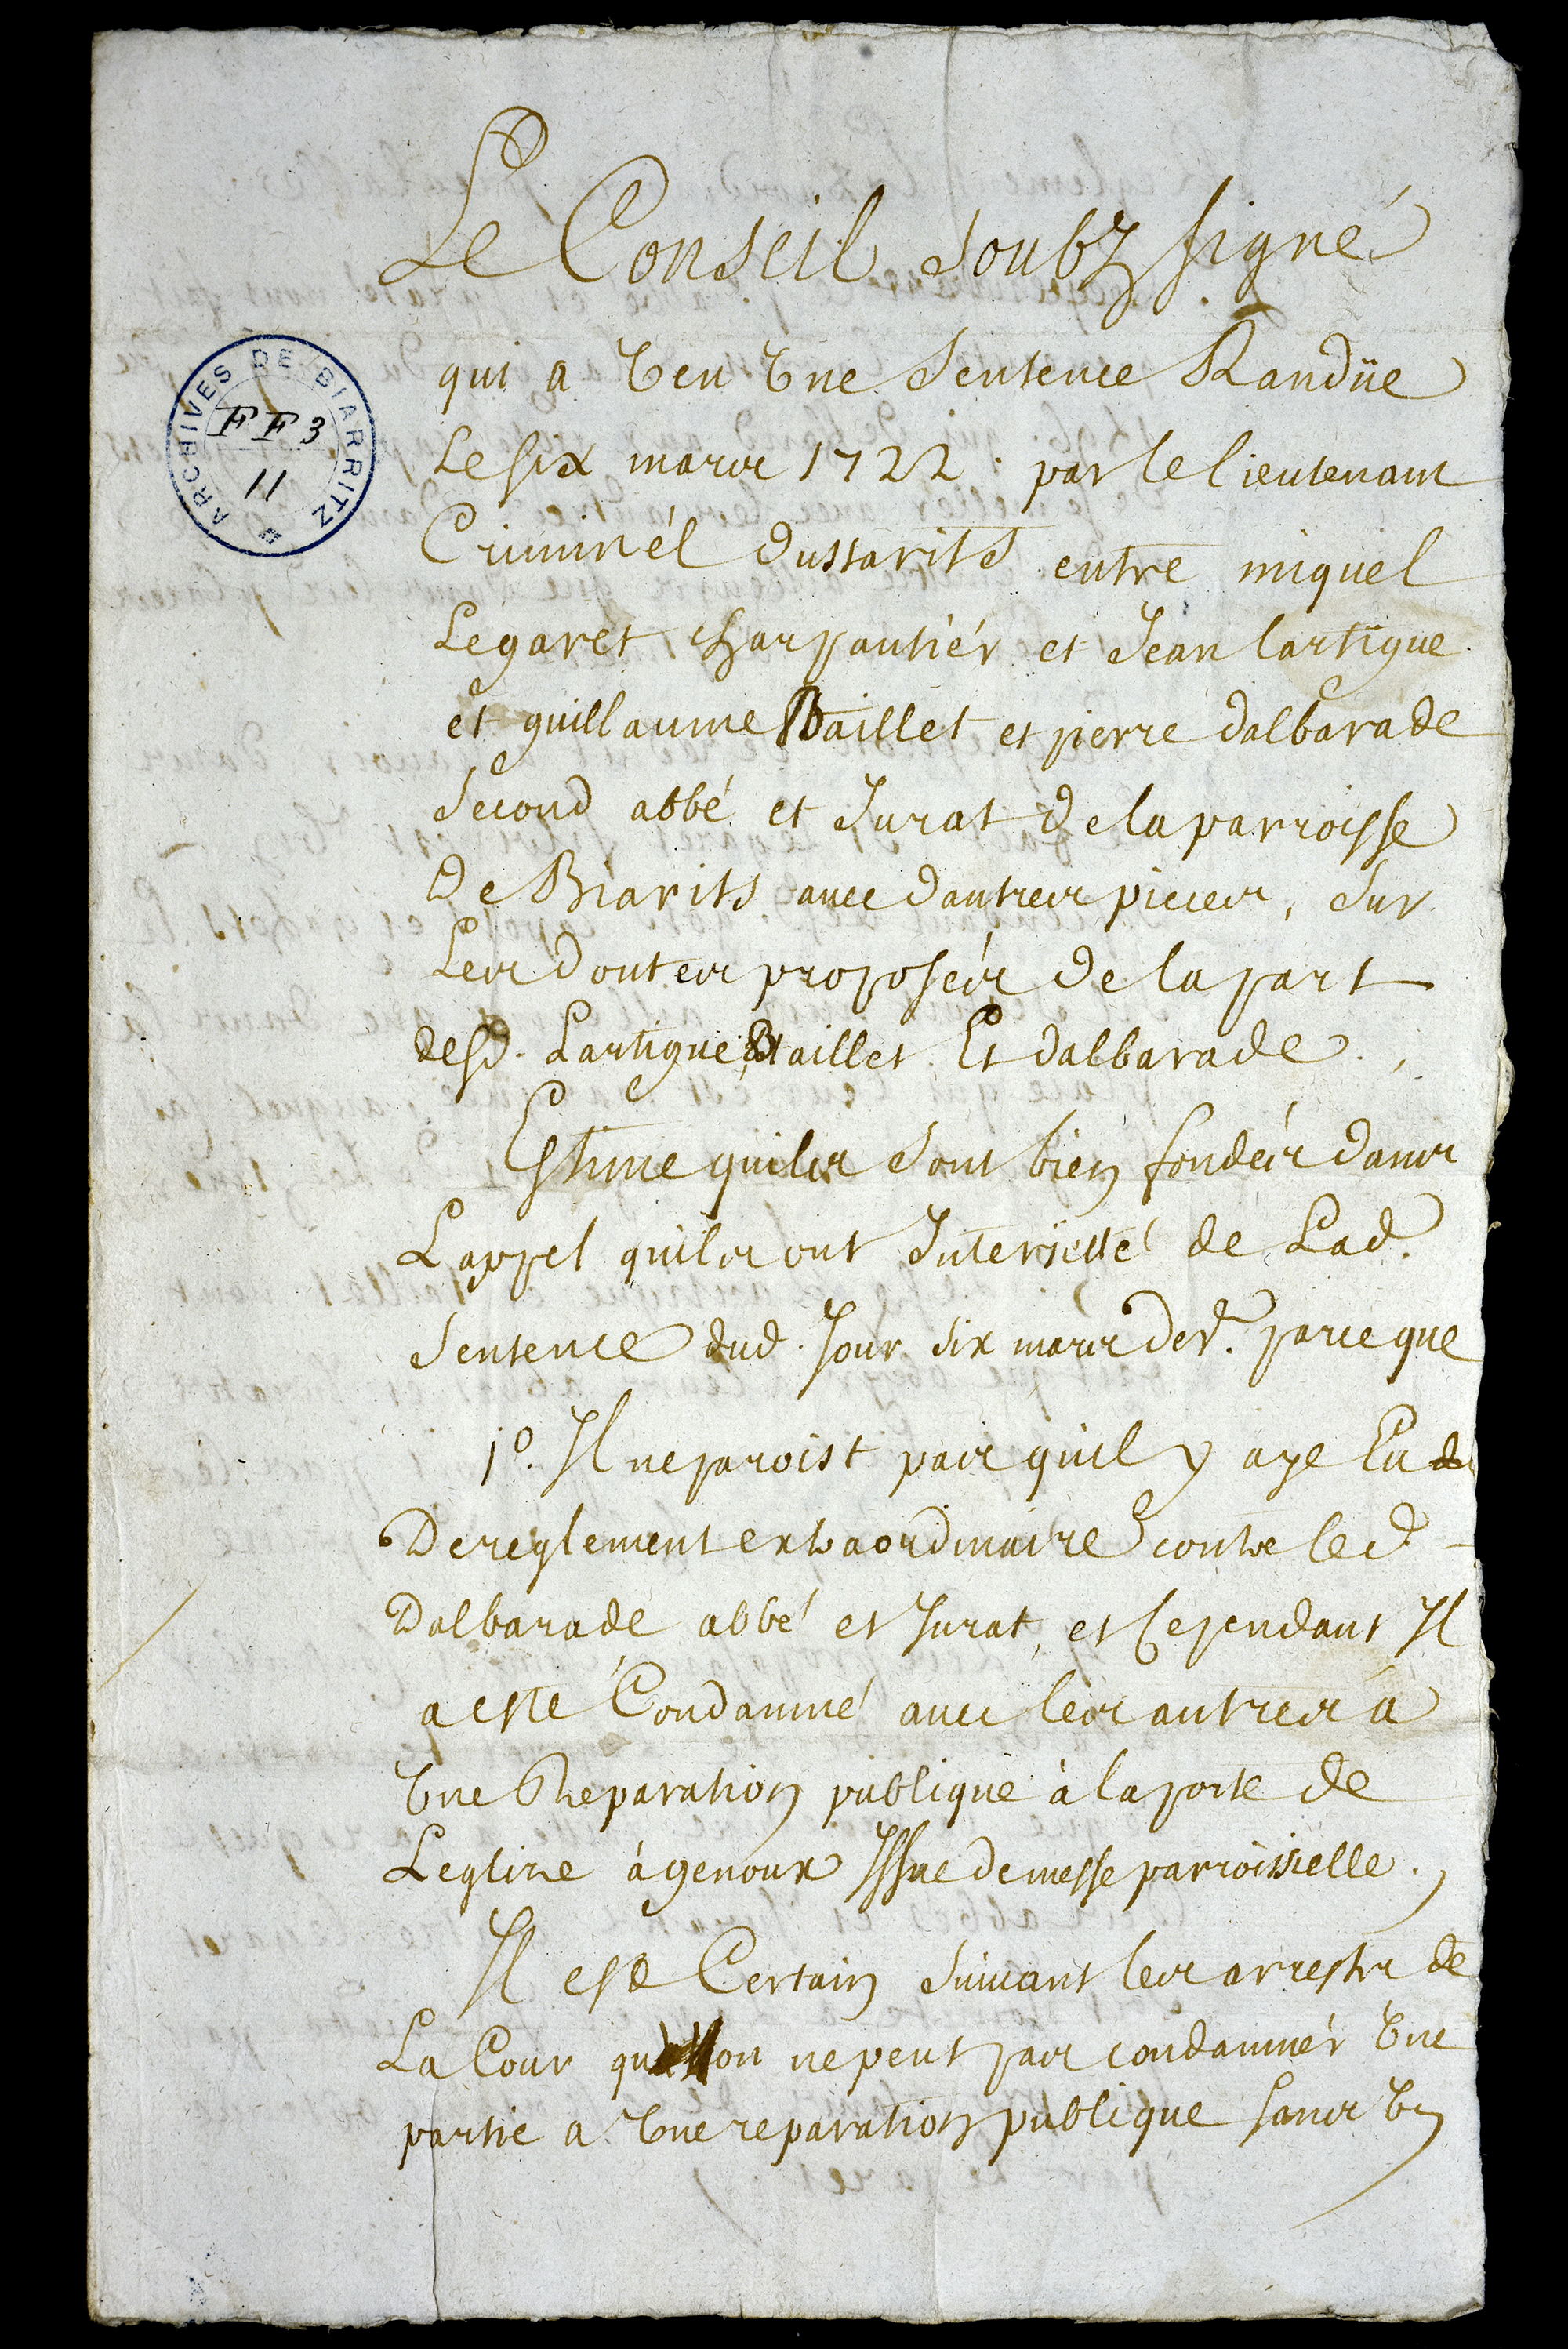 Le Conseil soubz signé
ARCHIVES DE BIARRITZ
FF 3
11
qui a veu vne sentence Randüe
Le six mars 1722. par le lieutenant
Criminél dustarits entre miquel
Legaret charpantiér et Jean lartigue
et guillaume Baillet et pierre dalbarade
second abbé et Jurat de la parroisse
de Biarits auec dautres pieces, sur
Les doutes proposés de la part
desd. Lartigue, Baillet Et dalbarade.
Estime quils sont bien fondés dans
Lappel quils ont Interjetté de Lad.
sentence dud. Jour six mars der. parceque
1o. Il ne paroist pas quil y aye Eu de
De reglement extraordinaire contre led
Dalbarade abbé et Jurat, et Cependant Il
a esté Condamné auec les autres a
vne Reparation publique à la porte de
Leglize à genoux Issue de messe parroissielle.
Il est Certain suiuant les arrests de
La Cour qu on ne peut pas condamnér vne
partie a vne reparation publique sans vn